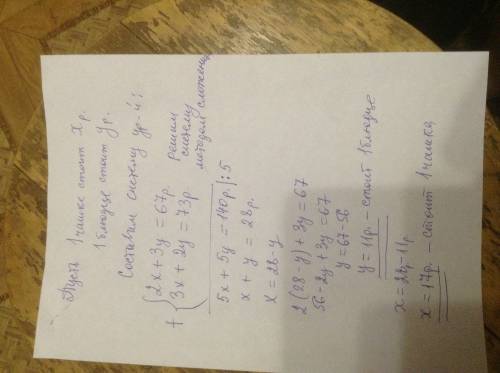 Пусть 1 чашка стоит x р.
1 блюдце стоит y р.
Составим систему ур-й:
+ { 2x + 3y = 67р. Решим
3x + 2y = 73р систему
методом сложения
5x + 5y = 140р. | : 5
x + y = 28р.
x = 28 - y
2(28 - y) + 3y = 67
56 - 2y + 3y = 67
y = 67 - 56
y = 11р. - стоит 1 блюдце
x = 28 - 11р.
x = 17р. - стоит 1 чашка